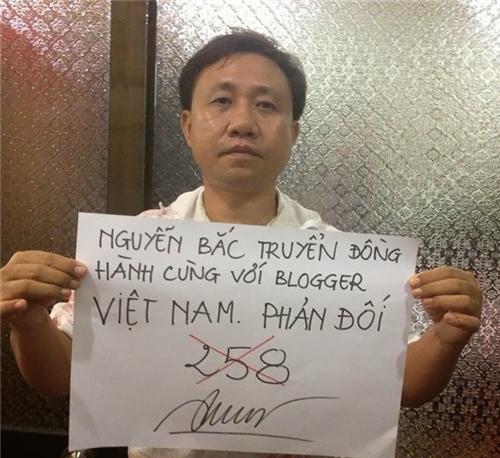 NGUYỄN BẮC TRUYỂN ĐỒNG
HÀNH CÙNG VỚI BLOGGER
VIỆT NAM. PHẢN ĐỐI
258